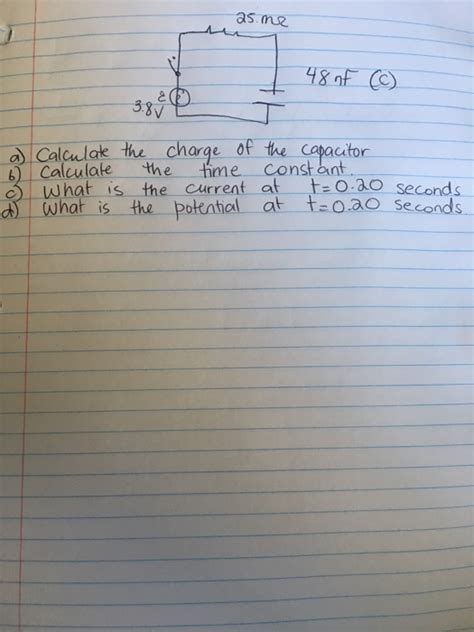 25.m
48nF (C)
ε
3.8V
a) Calculate the charge of the capacitor
b) Calculate the time constant.
c) What is the current at t=0.20 seconds
d) What is the potential at t=0.20 seconds